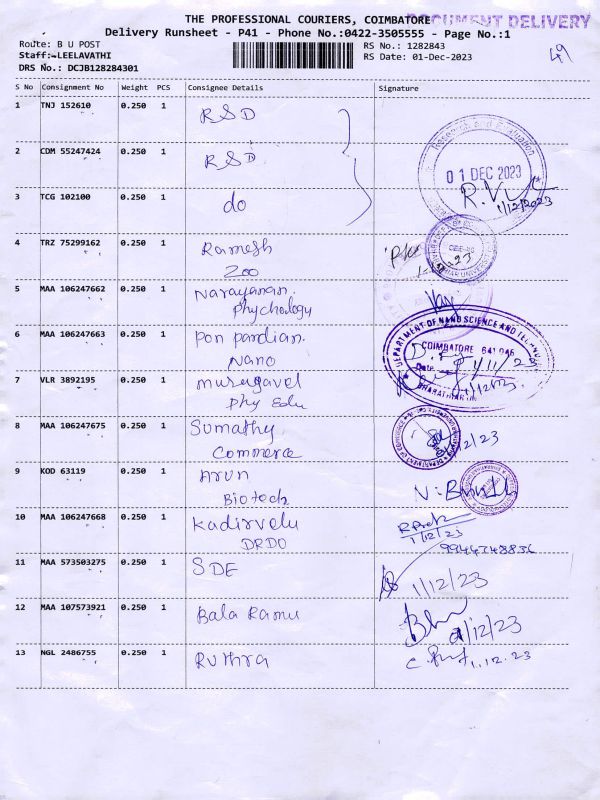 THE PROFESSIONAL COURIERS, COIMBATORE
DOCUMENT DELIVERY
Delivery Runsheet - P41 - Phone No.:0422-3505555 - Page No.:1
Route: B U POST
RS No.: 1282843
49
Staff:-LEELAVATHI
RS Date: 01-Dec-2023
DRS No.: DCJB128284301
S No Consignment No Weight PCS Consignee Details Signature
1 TNJ 152610 0.250 1 RSD
2 CDM 55247424 0.250 1 RSD
01 DEC 2023
3 TCG 102100 0.250 1 do
1/12/2023
4 TRZ 75299162 0.250 1 Ramesh
Zoo
5 MAA 106247662 0.250 1 Narayanan.
Phychology
6 MAA 106247663 0.250 1 Pon pandian.
Nano
DEPARTMENT OF NANO SCIENCE AND
COIMBATORE 641 046
Date
7 VLR 3892195 0.250 1 Murugavel
Phy Edu
8 MAA 106247675 0.250 1 Sumathy
Commerce
9 KOD 63119 0.250 1 Arun
Biotech
10 MAA 106247668 0.250 1 Kadirvelu
DRDO
1/12/23
11 MAA 573503275 0.250 1 SDE
1/12/23
12 MAA 107573921 0.250 1 Bala Ramu
1/12/23
13 NGL 2486755 0.250 1 Ruthra
1.12.23